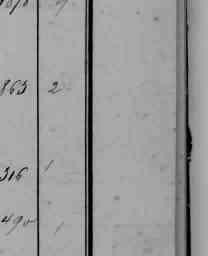 863 2
316 1
490 1